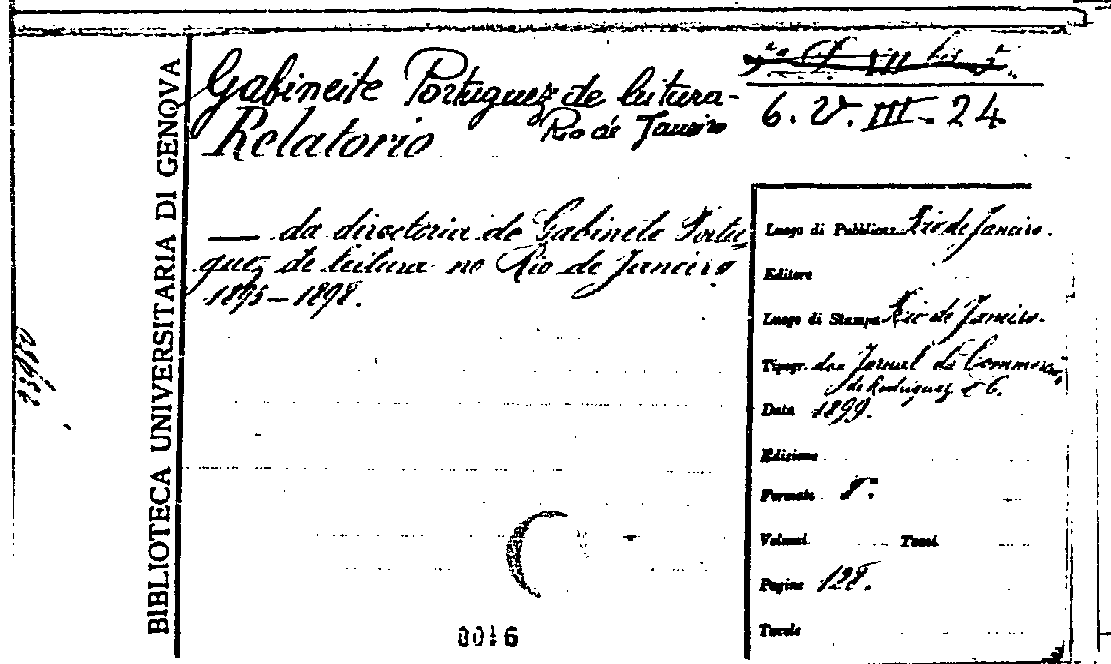 BIBLIOTECA UNIVERSITARIA DI GENOVA
Gabineite Portuguez de leitura-
Rio de Janeiro
Relatorio
6. V. III. 24
— da directoria de Gabinete Portu
guez de leitura no Rio de Janeiro
1895-1898.
Luogo di Pubblicaz. Rio de Janeiro.
Editore
Luogo di Stampa Rio de Janeiro.
Tipogr. do Jornal do Commercio
de Rodriguez & C.
Data 1899.
Edizione
Formato 8°.
Volumi Tomi
Pagine 128.
Tavole
0016